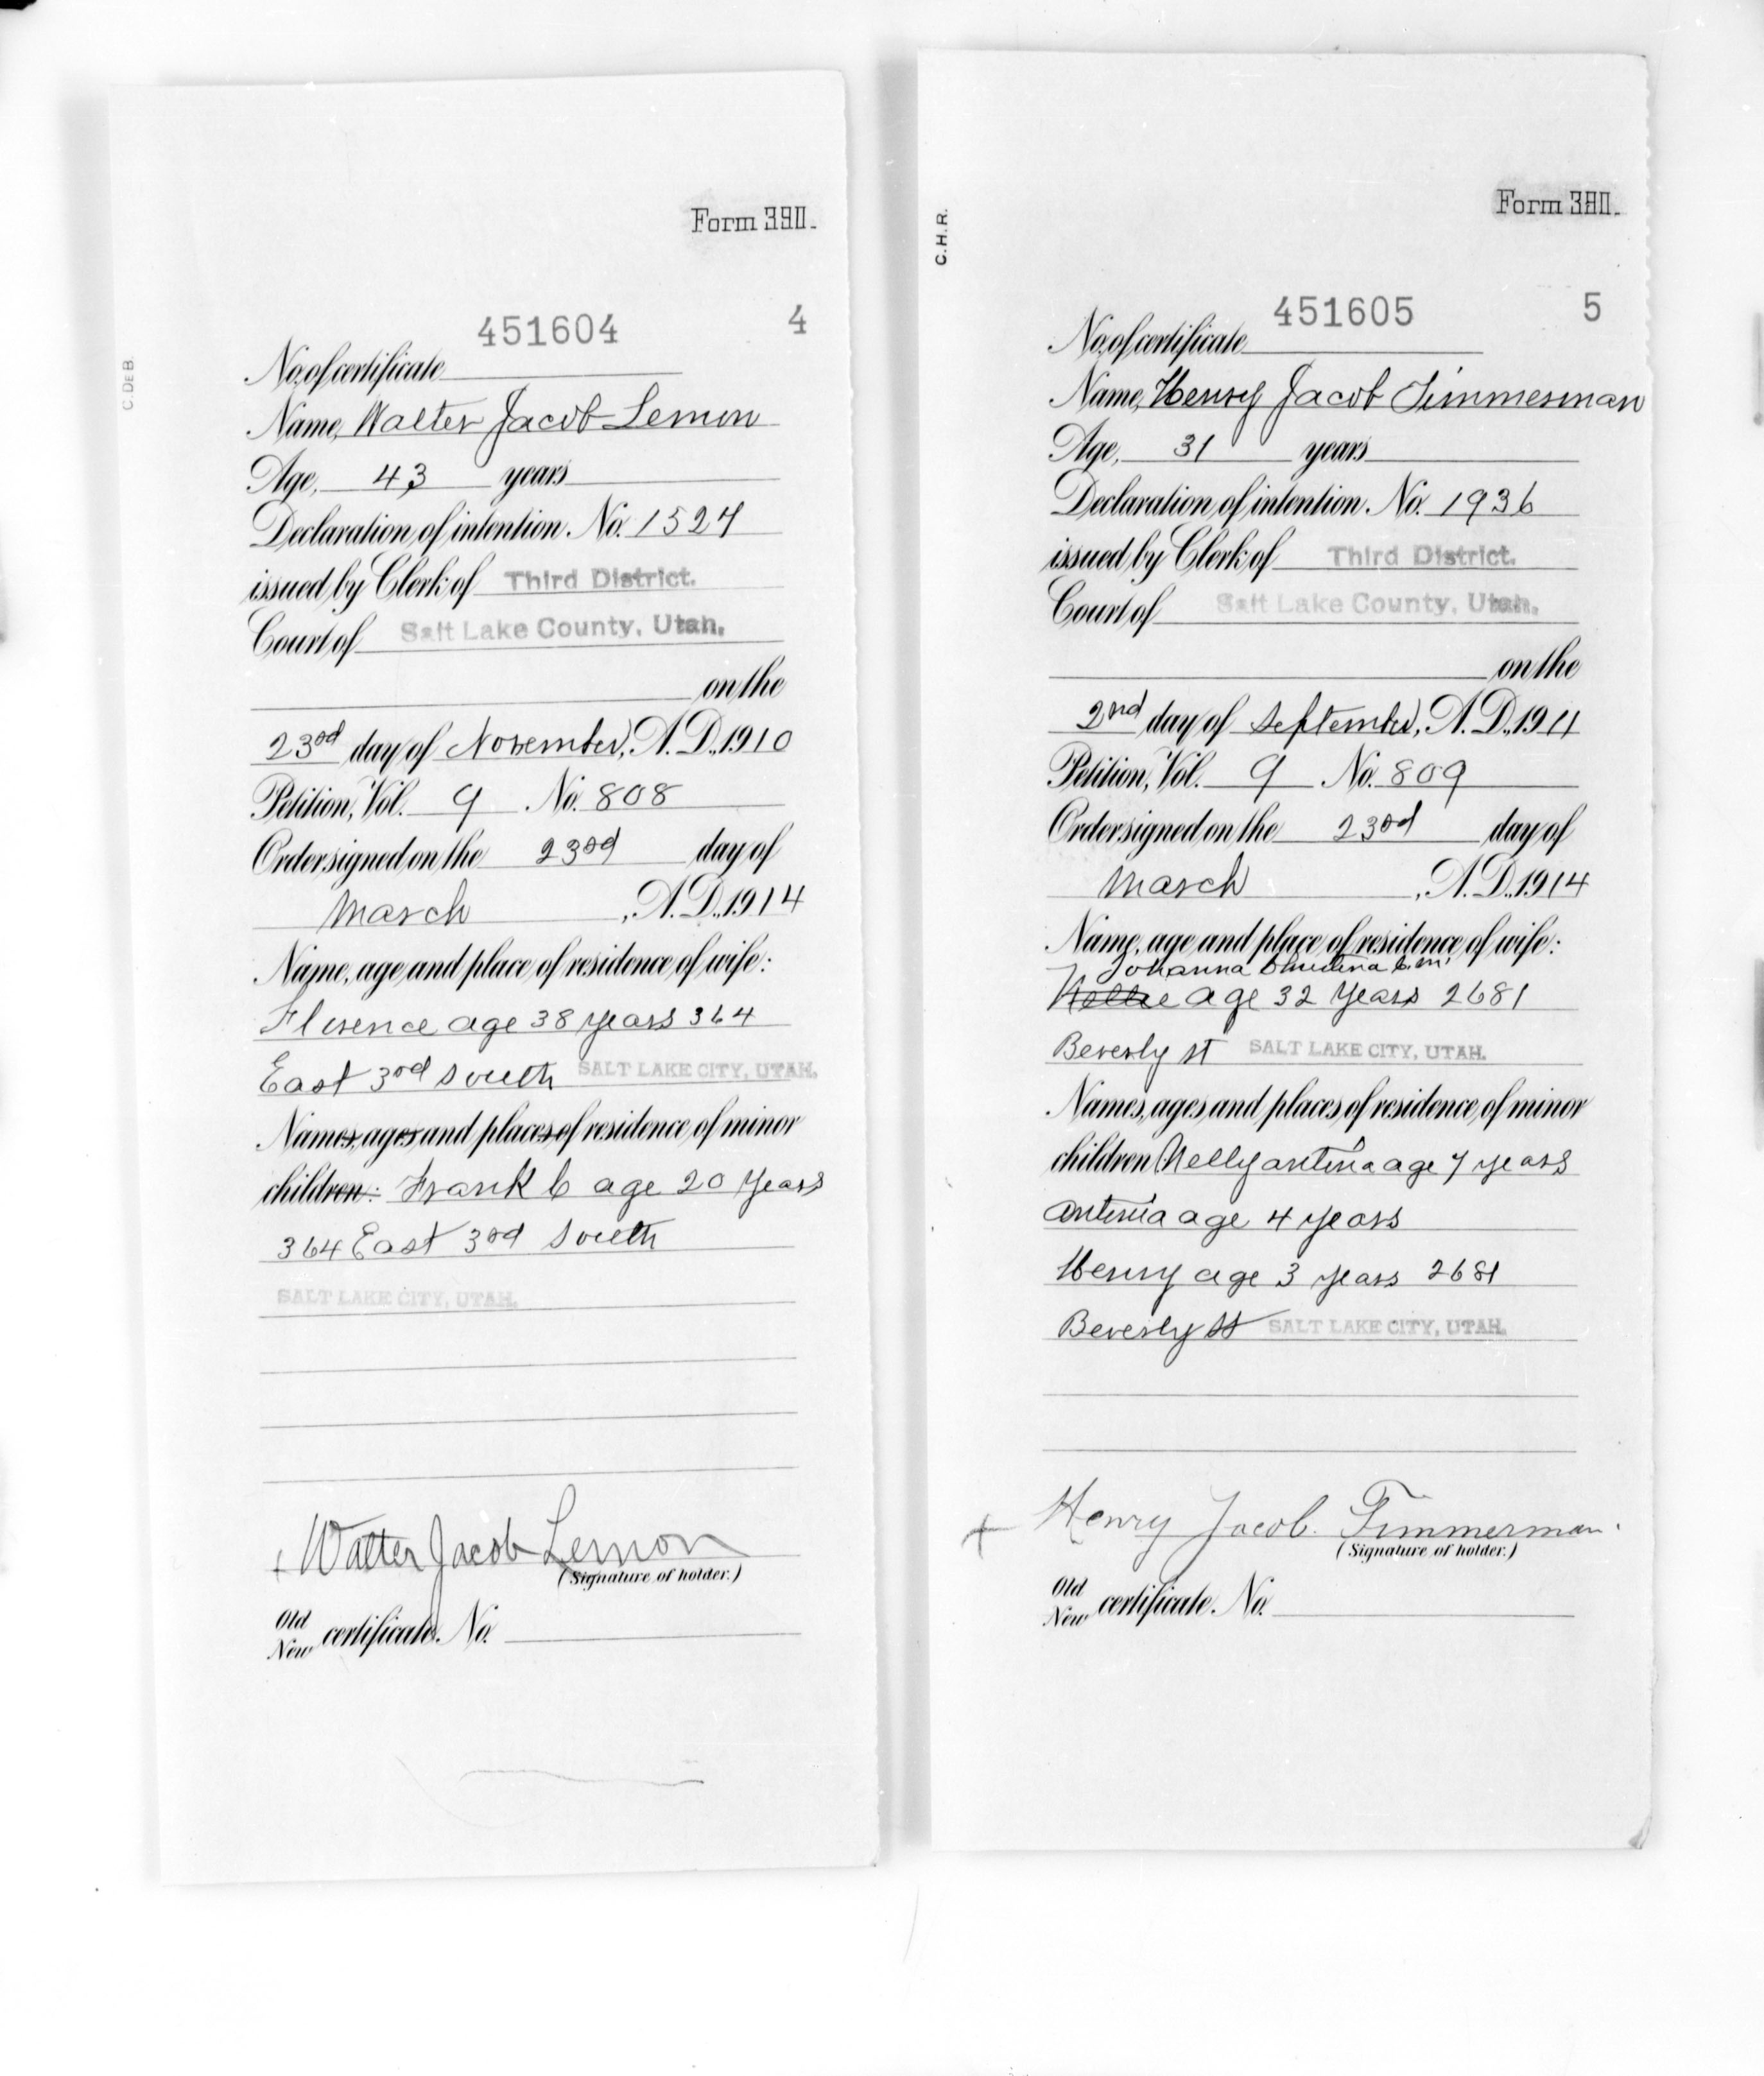 C.DEB.
Form 390.
451604 4
No. of certificate
Name, Walter Jacob Lemon
Age, 43 years
Declaration of intention. No. 1527
issued by Clerk of Third District.
Court of Salt Lake County, Utah.
on the
23rd day of November, A.D., 1910
Petition, Vol. 9 No. 808
Order signed on the 23rd day of
March, A.D., 1914
Name, age and place of residence of wife:
Florence age 38 years 364
East 3rd South SALT LAKE CITY, UTAH.
Names, ages and places of residence of minor
children: Frank C age 20 Years
364 East 3rd South
SALT LAKE CITY, UTAH.
Walter Jacob Lemon
(Signature of holder.)
Old
New certificate. No.
C.H.R.
Form 380.
451605 5
No. of certificate
Name, Henry Jacob Timmerman
Age, 31 years
Declaration of intention. No. 1936
issued by Clerk of Third District.
Court of Salt Lake County, Utah.
on the
2nd day of September, A.D., 1911
Petition, Vol. 9 No. 809
Order signed on the 23rd day of
March, A.D., 1914
Name, age and place of residence of wife:
Johanna Christina C.M.
Nellie age 32 Years 2681
Beverly st SALT LAKE CITY, UTAH.
Names, ages and places of residence of minor
children Nelly antina age 7 years
antina age 4 years
Henry age 3 years 2681
Beverly St SALT LAKE CITY, UTAH.
+ Henry Jacob. Timmerman.
(Signature of holder.)
Old
New certificate. No.